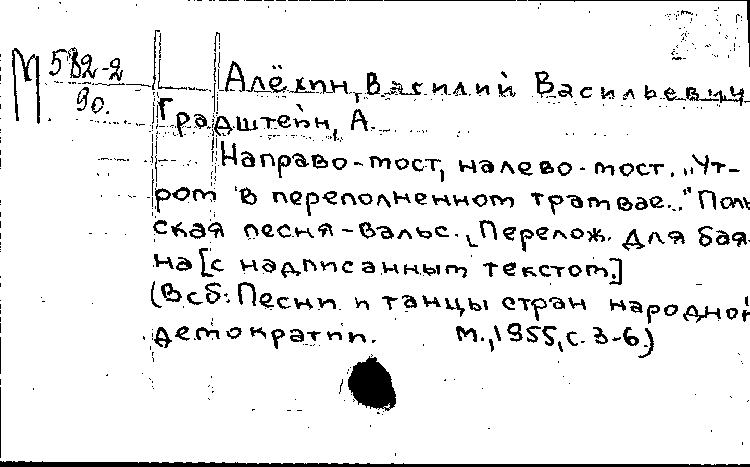 М 582-2
90.
Алёхин, Василий Васильевич
Градштейн, А.
Направо-мост, налево-мост. „Ут-
ром в переполненном трамвае..." Поль
ская песня-вальс. [Перелож. для бая-
на [с надписанным текстом.]
(В сб: Песни и танцы стран народной
демократии. М., 1955, с. 3-6.)